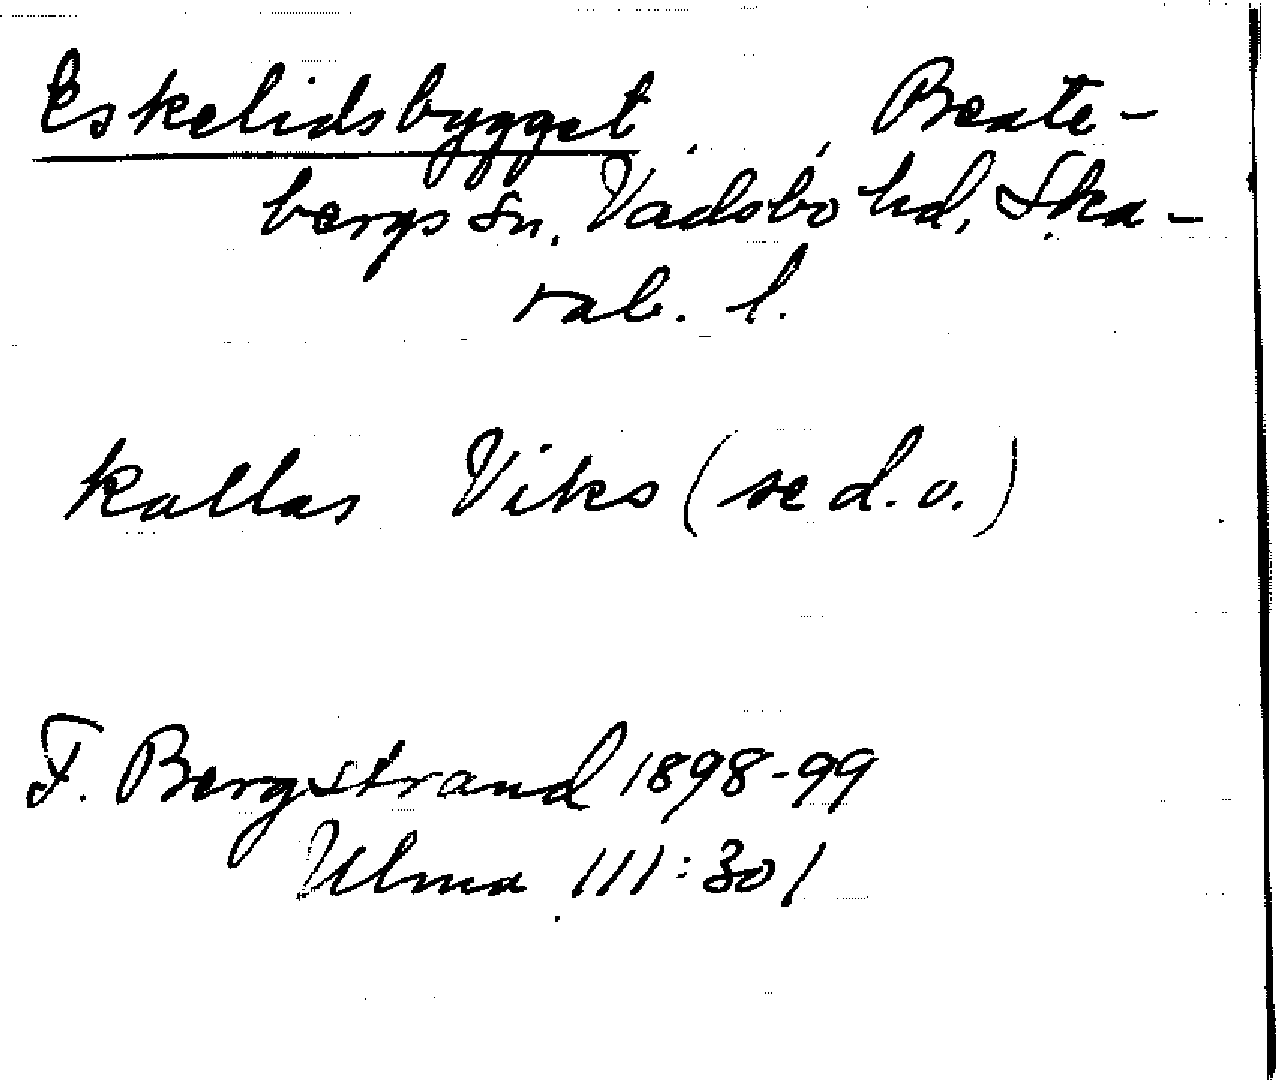 Eskelidsbygget, Beate-
bergs sn, Vadsbo hd, Ska-
rab. l.
kallas Viks (se d.o.)
F. Bergstrand 1898-99
Ulma 111:301